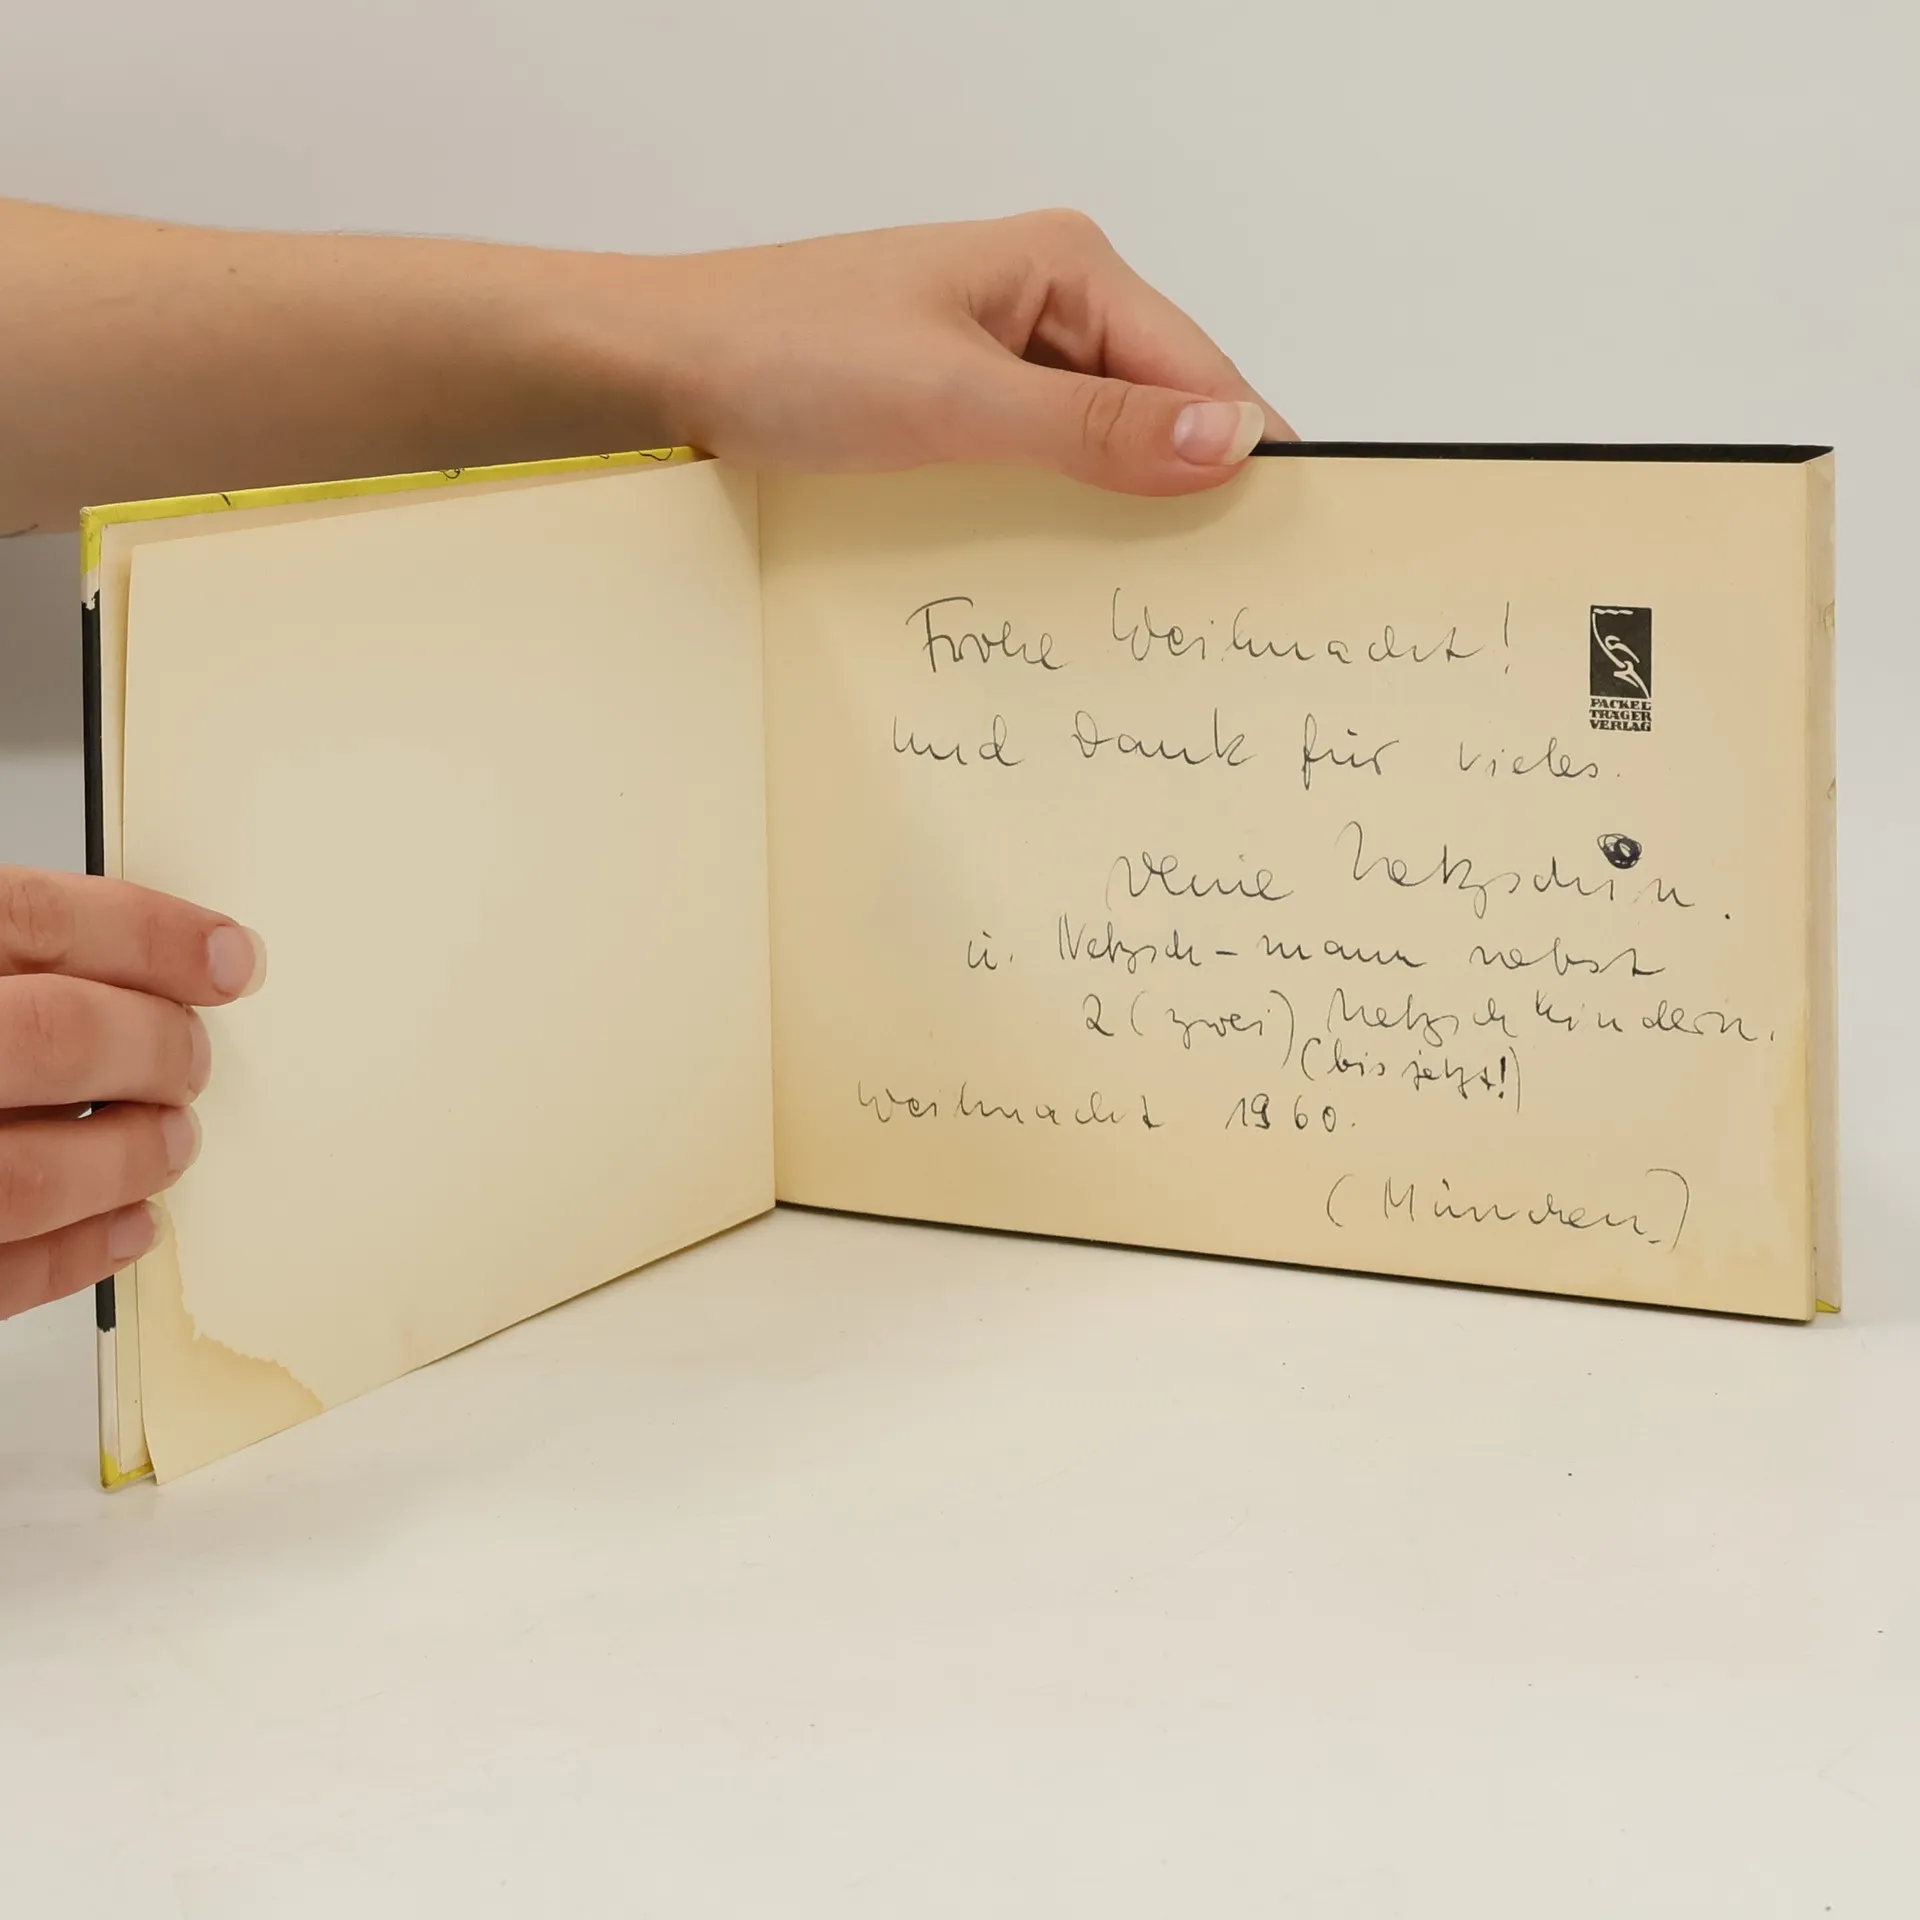 Frohe Weihnacht!
und Dank für vieles.
Deine Netzschin.
u. Netzsch-mann nebst
2 (zwei) Netzschkindern.
(bis jetzt!)
Weihnacht 1960.
(München)
FACKEL
TRÄGER
VERLAG